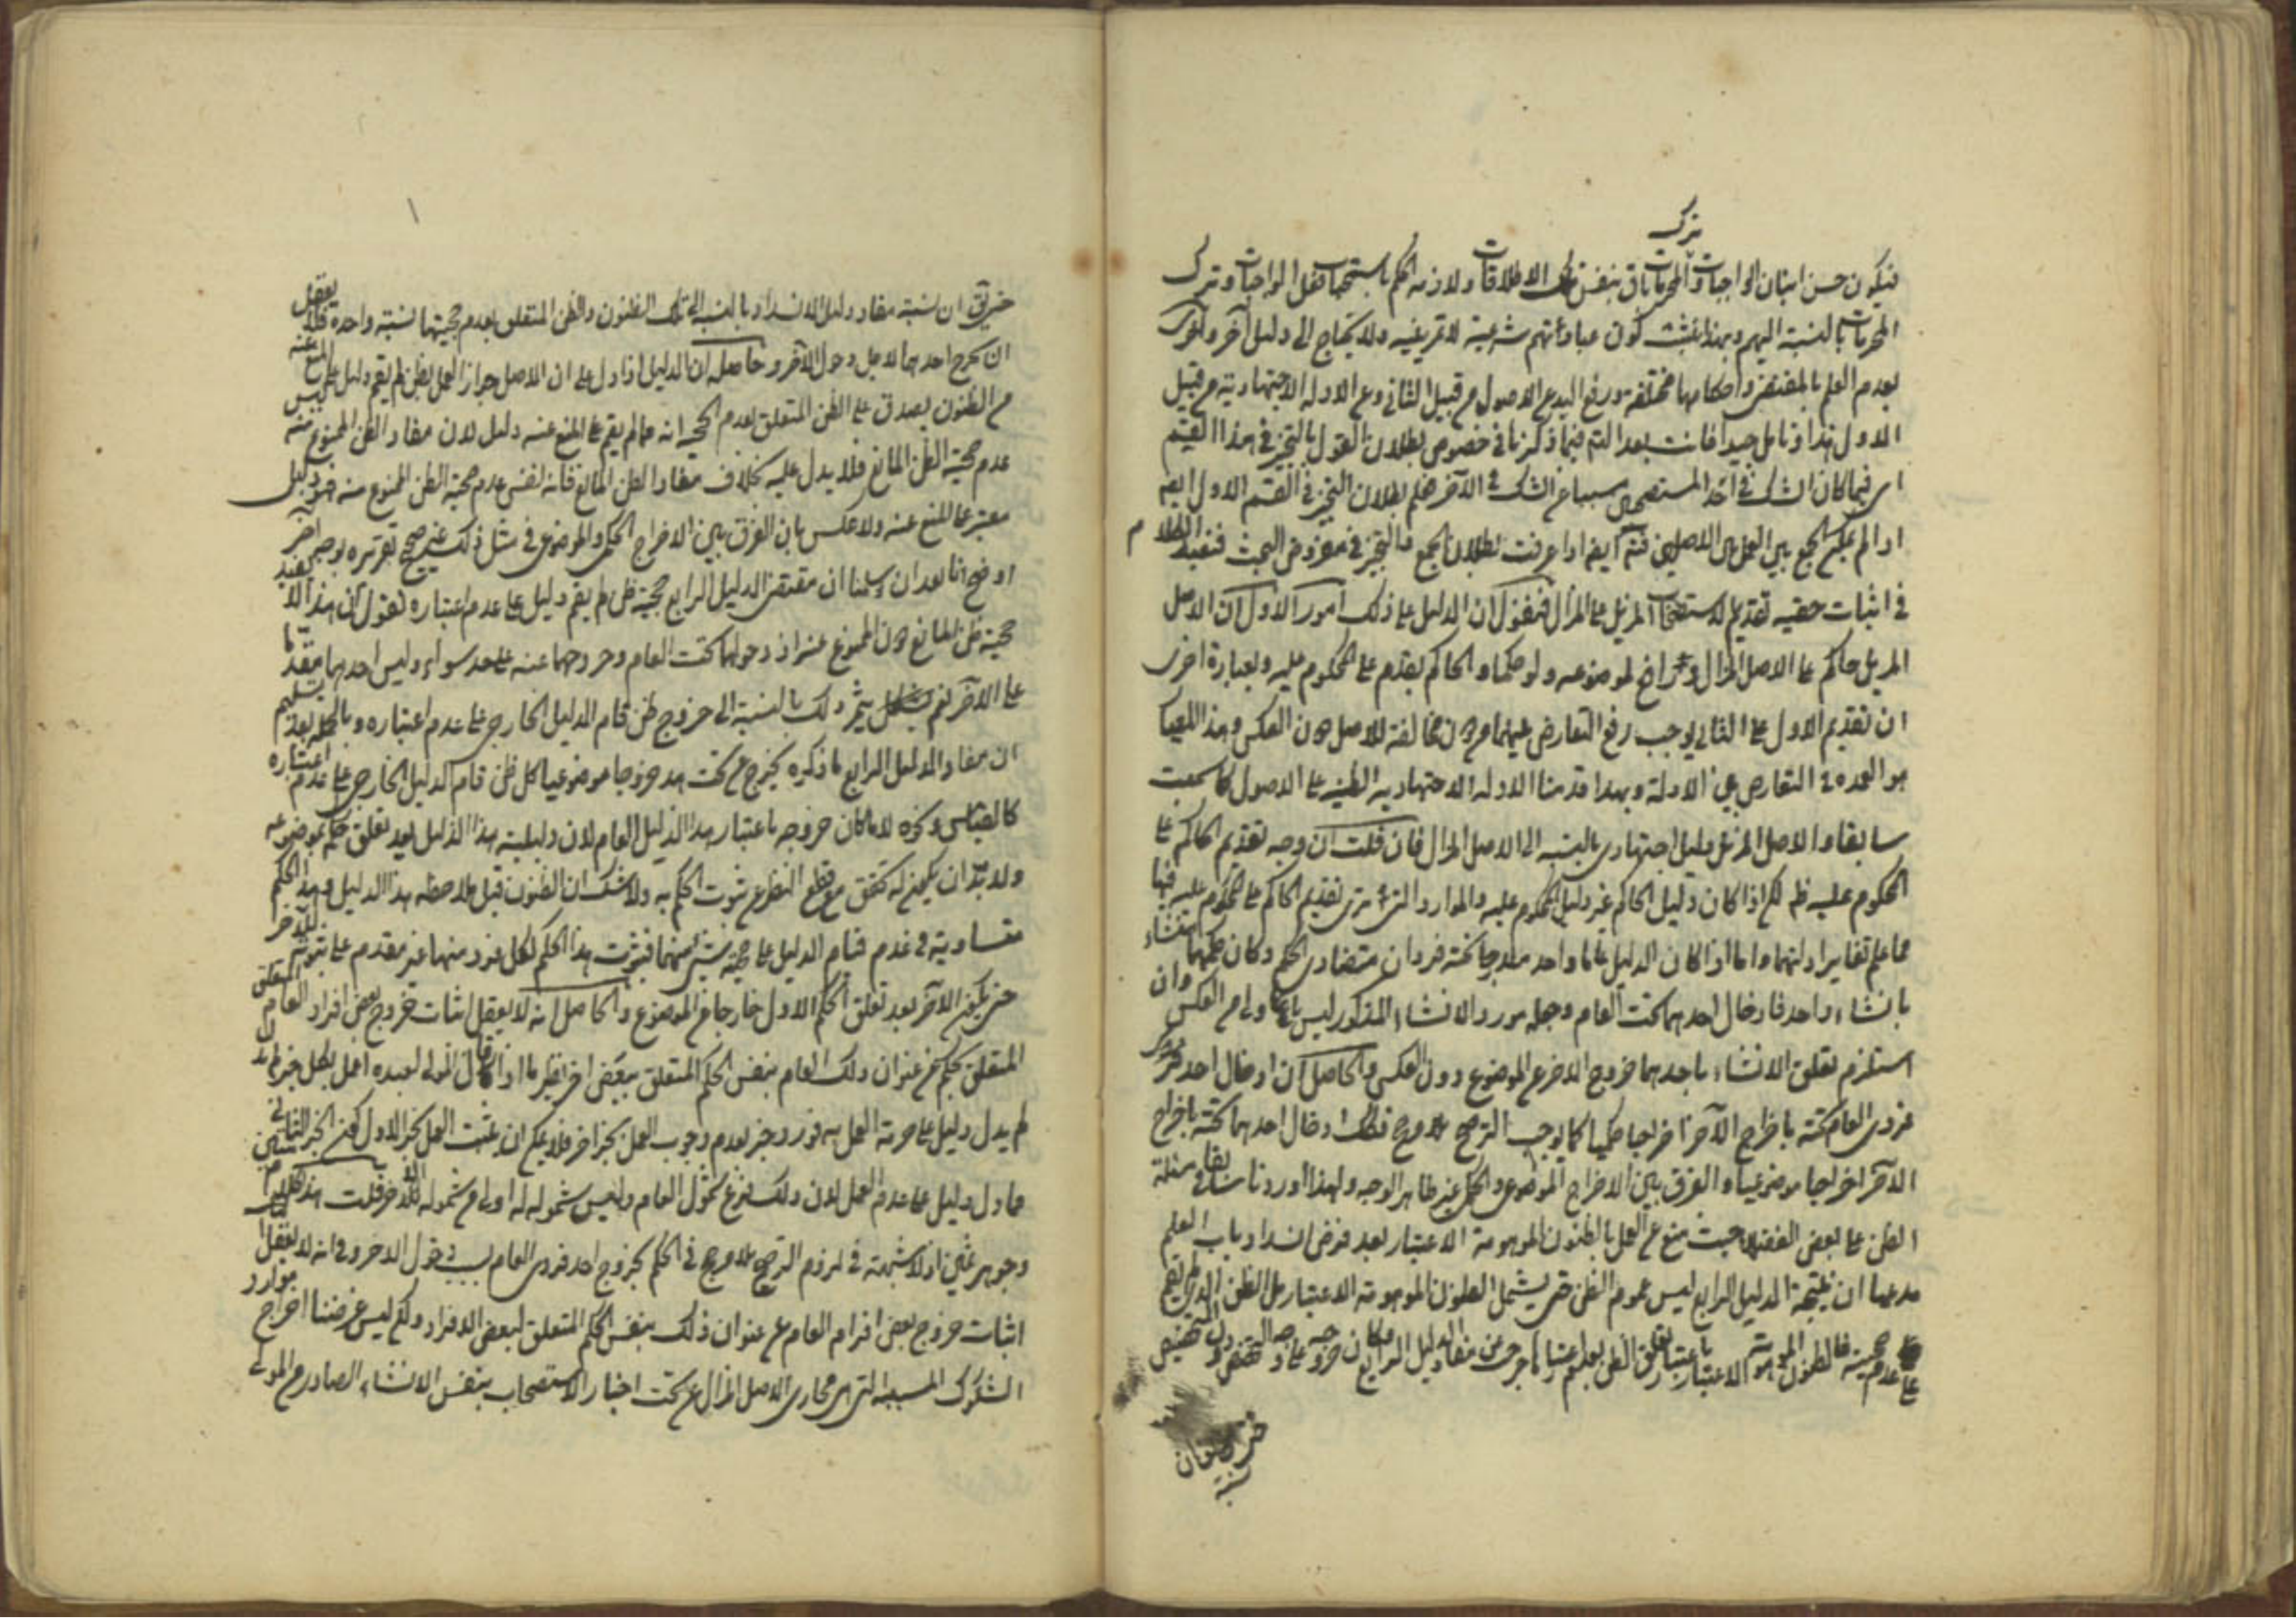 ترك
فيكون حسن اتيان الواجبات والمحرمات باق بنفس تلك الاطلاقات ولازمه الحكم باستحباب فعل الواجبات وترك
المحرمات بالنسبة اليهم وبهذا يثبت كون عباداتهم شرعية لا تمرينية ولا يحتاج الى دليل آخر
بعدم العلم بالمقتضى واحكامها مختلفة ورفع اليد عن الاصول من قبيل الثاني وعن الادلة الاجتهادية من قبيل
الاول هذا وتامل جيدا فانت بعد التامل فيما ذكرنا في خصوص بطلان القول بالتخيير في هذا القسم
اى فيما كان الشك في احد المستصحبين مسببا عن الشك في الآخر تعلم بطلان التخيير في القسم الاول ايضا
اذا لم يمكن الجمع بين العمل بالاصلين فيه ايضا اذا عرفت بطلان الجمع والتخيير في مفروض البحث فنقول
في اثبات حقية تقديم الاستصحاب المزيل على المزال فنقول ان الدليل على ذلك امور الاول ان الاصل
المزيل حاكم على الاصل المزال ورافع لموضوعه ولو حكما والحاكم يقدم على المحكوم عليه وبعبارة اخرى
ان تقديم الاول على الثاني يوجب رفع التعارض عنهما من دون مخالفة للاصل دون العكس وهذا المعيار
هو العمدة في التعارض بين الادلة وبهذا قدمنا الادلة الاجتهادية الظنية على الاصول كما سمعت
سابقا والاصل المزيل دليل اجتهادى بالنسبة الى الاصل المزال فان قلت ان وجه تقديم الحاكم على
المحكوم عليه ظاهر لكن اذا كان دليل الحاكم غير دليل المحكوم عليه والموارد التى ترى تقديم الحاكم على المحكوم عليه فيها
مما علم تغاير ادلتهما واما اذا كان الدليل عاما واحد مندرجا تحته فردان متضادى الحكم وكان حكمهما
بانشاء واحد فادخال احدهما تحت العام وجعله مورد الانشاء المذكور ليس باولى من العكس وان
استلزم تعلق الانشاء باحدهما خروج الاخر عن الموضوع دون العكس والحاصل ان ادخال احد
فردى العام تحته باخراج الآخر اخراجا حكميا كما يوجب الترجيح بلا مرجح فكذلك ادخال احدهما تحته باخراج
الآخر اخراجا موضوعيا والفرق بين الاخراج الموضوعى والحكمى غير ظاهر الوجه ولهذا اوردنا سابقا في مسئلة
الظن على بعض الفضلاء حيث منع عن العمل بالظنون الموهومة الاعتبار بعد فرض انسداد باب العلم
مدعيا ان نتيجة الدليل الرابع ليس عموم الظن حتى يشمل الظنون الموهومة الاعتبار بل الظن الذى لم يقم
على عدم حجيته فالظنون الموهومة الاعتبار باعتبار تعلق الظن بعدم اعتبارها خرجت من مفاد الدليل الرابع
حتى يق ان نسبة مفاد دليل الانسداد بالنسبة الى تلك الظنون والظن المتعلق بعدم حجيتها نسبة واحدة فلا يعقل
ان يخرج احدهما لاجل دخول الآخر وحاصله ان الدليل اذا دل على ان الاصل جواز العمل بظن لم يقم دليل على المنع عنه
من الظنون يصدق على الظن المتعلق بعدم الحجية انه مما لم يقم على المنع عنه دليل لان مفاد الظن الممنوع ليس
عدم حجية الظن المانع فلا يدل عليه بخلاف مفاد الظن المانع فانه نفس عدم حجية الظن الممنوع منه فهو دليل
معتبر على المنع عنه ولا عكس بان الفرق بين الاخراج الحكمى والموضوعى في مثل ذلك غير صحيح تقريره بوجه آخر
اوضح انا بعد ان سلمنا ان مقتضى الدليل الرابع حجية ظن لم يقم دليل على عدم اعتباره نقول ان هذا لا يفيد
حجية ظن المانع دون الممنوع عنه اذ دخولهما تحت العام وخروجهما عنه على حد سواء وليس احدهما مقدما
على الآخر نعم يثمر ذلك بالنسبة الى خروج ظن قام الدليل الخارجى على عدم اعتباره وبالجملة بعد تسليم
ان مفاد الدليل الرابع ما ذكره يخرج عن تحت هذا خروجا موضوعيا كل ظن قام الدليل الخارجى على عدم اعتباره
كالقياس ونحوه لا ما كان خروجه باعتبار هذا الدليل العام لان دليلية هذا الدليل بعد تعلق حكم بموضوعه
ولا بد ان يكون له تحقق مع قطع النظر عن ثبوت الحكم به ولا شك ان الظنون قبل ملاحظة هذا الدليل وهذا الحكم
متساوية في عدم قيام الدليل على حجية شىء منهما فثبوت هذا الحكم لكل فرد منها غير مقدم على ثبوته للآخر
حتى يكون الآخر بعد تعلق الحكم الاول خارجا عن الموضوع والحاصل انه لا يعقل اثبات خروج بعض افراد العام
المتعلق بحكم عن عنوان ذلك العام بنفس الحكم المتعلق ببعض آخر نظير ما اذا قال المولى لعبده اعمل بكل خبر
لم يدل دليل على حرمة العمل به فورد خبر بعدم وجوب العمل بخبر آخر فلا يمكن ان يثبت العمل بخبر الاول كون الخبر الثانى
مما دل دليل على عدم العمل لان ذلك فرع شمول العام وليس شموله له اولى من شموله للآخر قلت هذا كلام
وجوهر ثمين اذ لا شبهة في لزوم الترجيح بلا مرجح في الحكم بخروج احد فردى العام بسبب دخول الاخر وفي انه لا يعقل
اثبات خروج بعض افراد العام عن عنوان ذلك بنفس الحكم المتعلق لبعض الافراد ولكن ليس غرضنا اخراج موارد
الشكوك المسببة التى هى مجارى الاصل المزال عن تحت اخبار الاستصحاب بنفس الانشاء الصادر من المولى